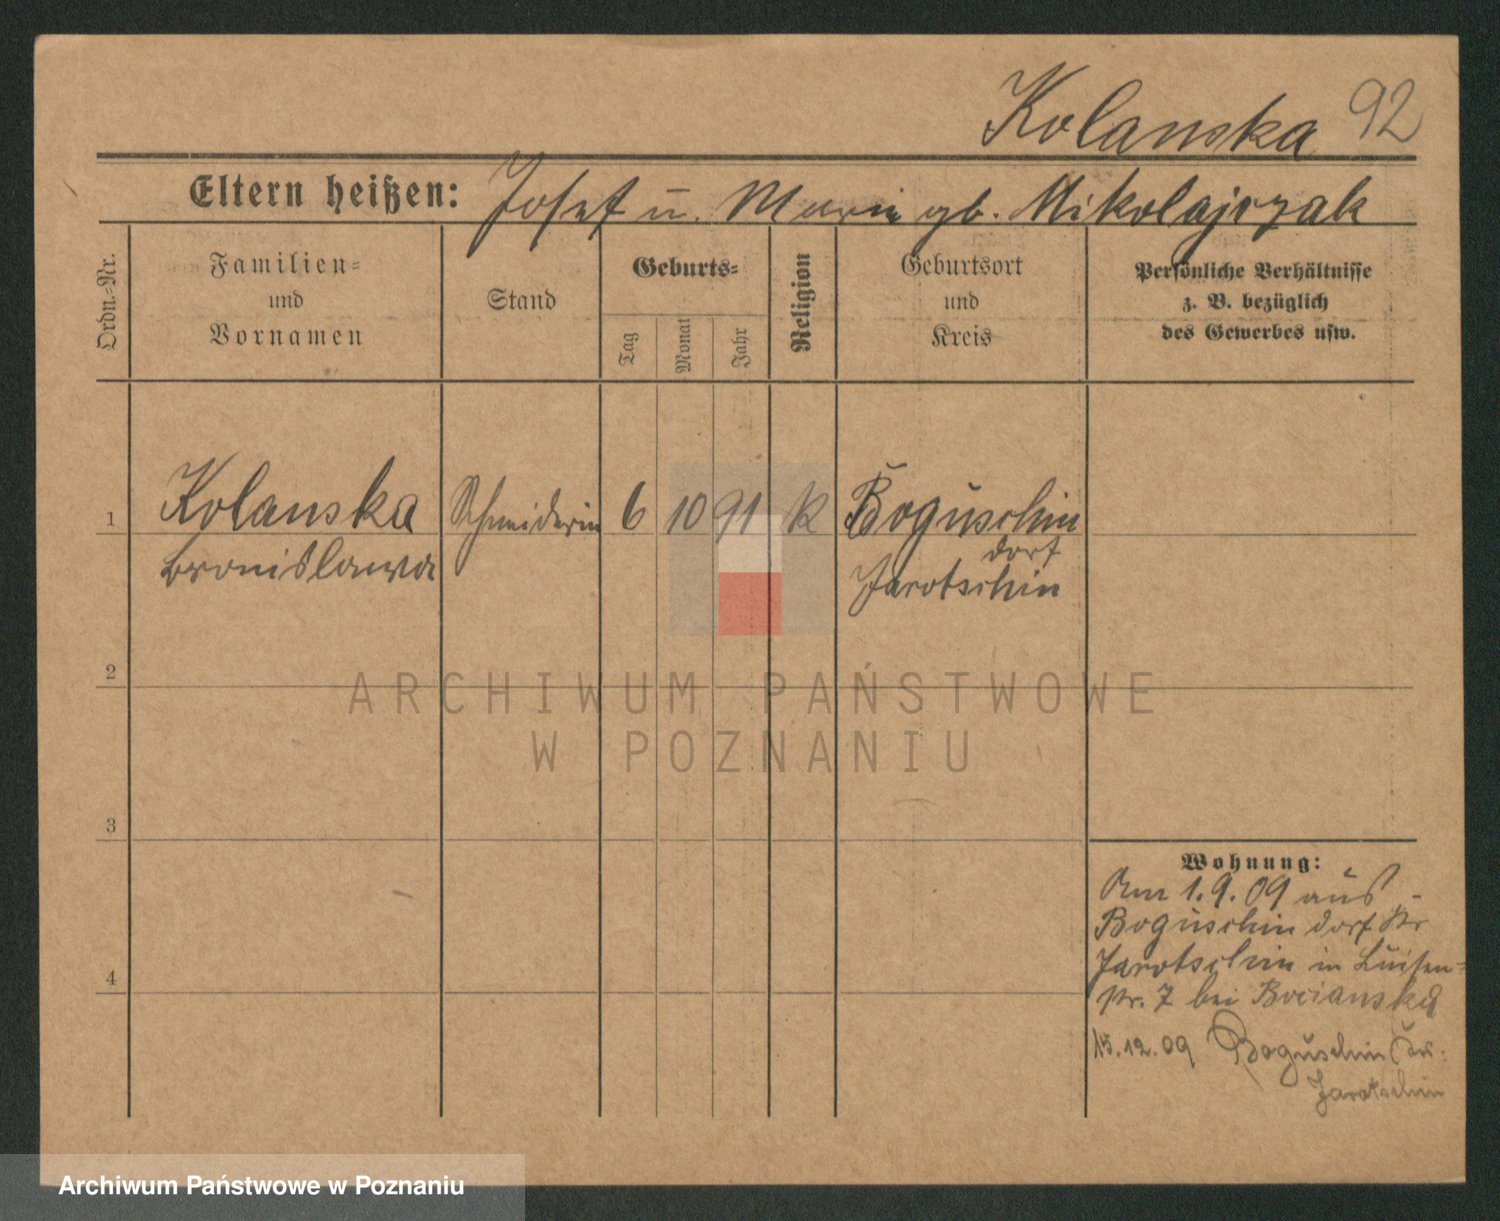 Kolanska 92
Eltern heißen: Josef u. Marie gb. Mikolajczak
Ordn.-Nr.
Familien-
und
Vornamen
Stand
Geburts-
Tag
Monat
Jahr
Religion
Geburtsort
und
Kreis
Persönliche Verhältnisse
z. B. bezüglich
des Gewerbes usw.
1
Kolanska
Bronislawa
Schneiderin
6
10
91
K
Boguschin
dorf
Jarotschin
2
3
4
Wohnung:
Am 1.9.09 aus
Boguschin dorf Kr
Jarotschin in Luisen-
str. 7 bei Bocianska
15.12.09 Boguschin
Jarotschin
ARCHIWUM PAŃSTWOWE
W POZNANIU
Archiwum Państwowe w Poznaniu